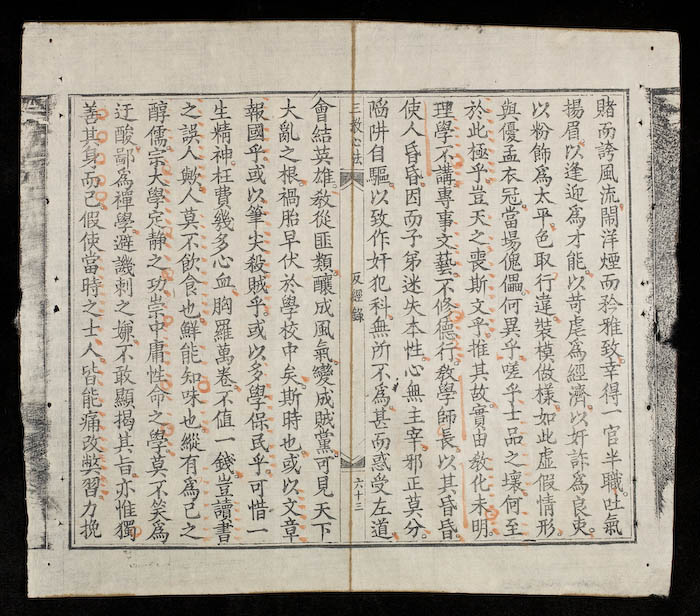 賭而誇風流鬧洋煙而矜雅致幸得一官半職吐氣
揚眉以逢迎爲才能以苛虐爲經濟以奸詐爲良吏
以粉飾爲太平色取行違裝模做樣如此虛假情形
與優孟衣冠當場傀儡何異乎嗟乎士品之壞何至
於此極乎豈天之喪斯文乎推其故實由敎化未明
理學不講專事文藝不修德行敎學師長以其昏昏
使人昏昏因而子弟迷失本性心無主宰邪正莫分
陷阱自驅以致作奸犯科無所不爲甚而惑受左道
三教心法
反經錄
六十三
會結英雄敎從匪類釀成風氣變成賊黨可見天下
大亂之根禍胎早伏於學校中矣斯時也或以文章
報國乎或以筆尖殺賊乎或以多學保民乎可惜一
生精神枉費幾多心血胸羅萬卷不值一錢豈讀書
之誤人歟人莫不飲食也鮮能知味也縱有爲己之
醇儒宗大學定静之功崇中庸性命之學莫不笑爲
迂酸鄙爲禪學避譏刺之嫌不敢顯揭其旨亦惟獨
善其身而己假使當時之士人皆能痛改弊習力挽